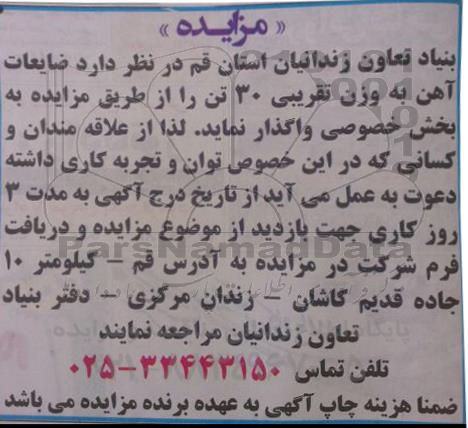 « مزایده »
بنیاد تعاون زندانیان استان قم در نظر دارد ضایعات
آهن به وزن تقریبی ۳۰ تن را از طریق مزایده به
بخش خصوصی واگذار نماید. لذا از علاقه مندان و
کسانی که در این خصوص توان و تجربه کاری داشته
دعوت به عمل می آید از تاریخ درج آگهی به مدت ۳
روز کاری جهت بازدید از موضوع مزایده و دریافت
فرم شرکت در مزایده به آدرس قم – کیلومتر ۱۰
جاده قدیم کاشان – زندان مرکزی – دفتر بنیاد
تعاون زندانیان مراجعه نمایند
تلفن تماس ۳۳۴۴۳۱۵۰–۰۲۵
ضمنا هزینه چاپ آگهی به عهده برنده مزایده می باشد
ParsNamadData